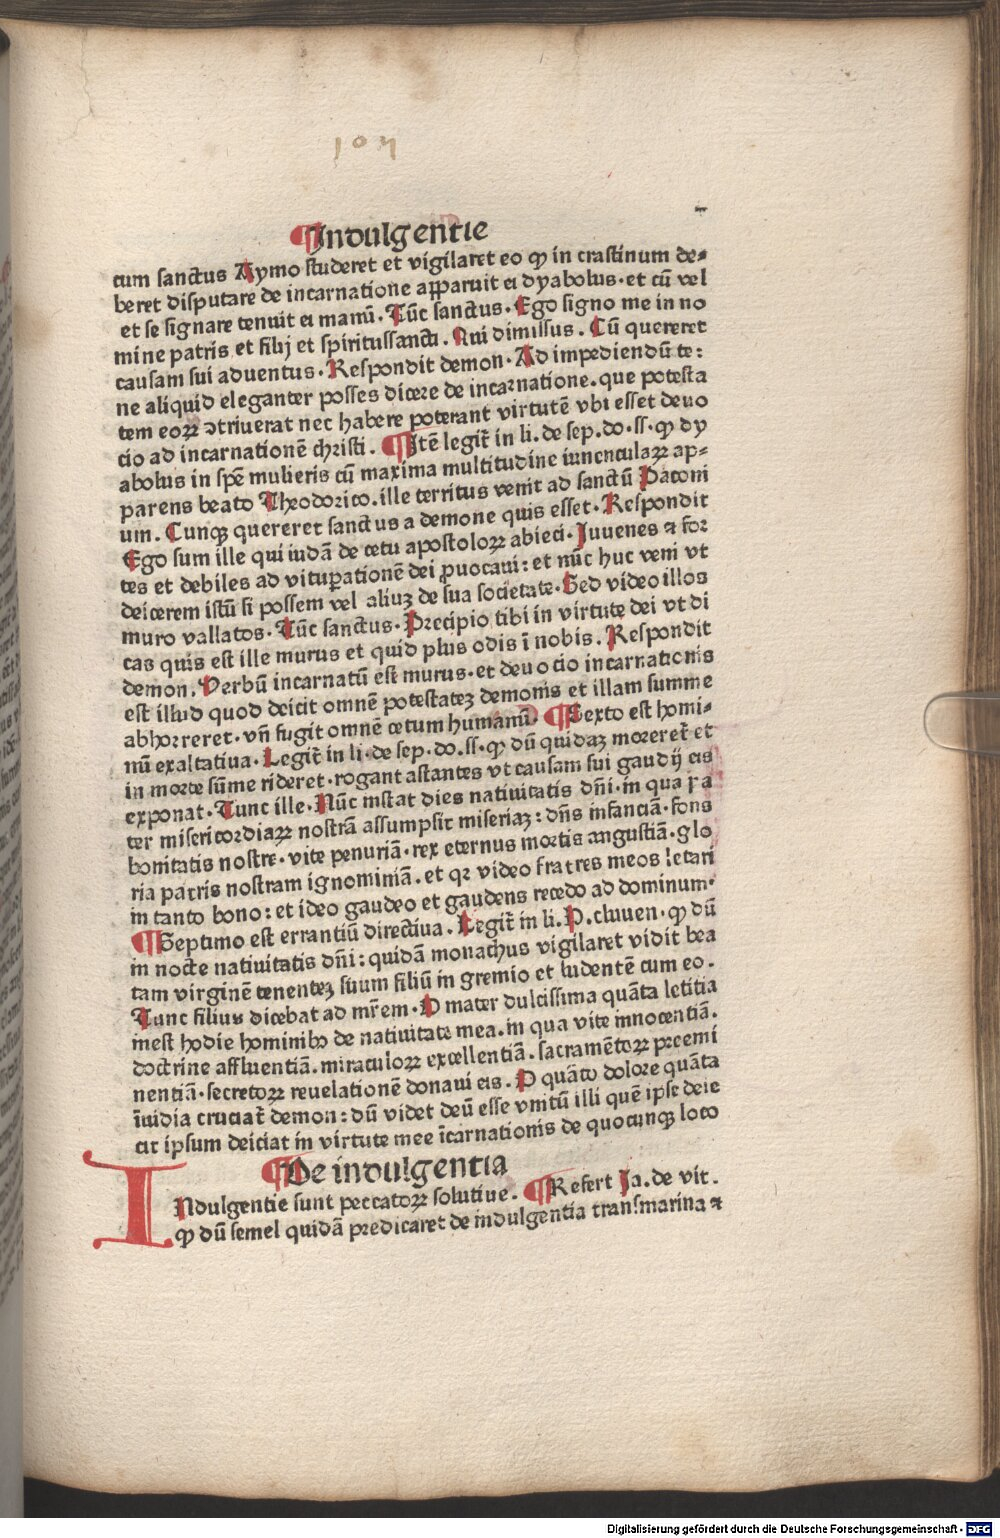 107
¶Indulgentie
cum sanctus Aymo studeret et vigilaret eo ꝙ in crastinum de⸗
beret disputare de incarnatione apparuit ei dyabolus· et cū vel
et se signare tenuit ei manū. Tūc sanctus. Ego signo me in no
mine patris et filij et spiritussancti. Qui dimissus. Cū quereret
causam sui aduentus. Respondit demon. Ad impediendū te:
ne aliquid eleganter posses dicere de incarnatione. que potesta
tem eoꝝ ↄtriuerat nec habere poterant virtutē vbi esset deuo
cio ad incarnationē christi. ¶Itē legit᷑ in li. de sep. do. ss. ꝙ dy
abolus in spē mulieris cū maxima multitudine iuuenculaꝝ ap⸗
parens beato Theodorico. ille territus venit ad sanctū Paconi
um. Cunqꝫ quereret sanctus a demone quis esset. Respondit
Ego sum ille qui iudā de cetu apostoloꝝ abieci. Iuuenes ⁊ for
tes et debiles ad vituꝑationē dei ꝓuocaui: et nūc huc veni vt
deicerem istū si possem vel aliuꝫ de sua societate. Sed video illos
muro vallatos. Tūc sanctus. Precipio tibi in virtute dei vt di
cas quis est ille murus et quid plus odis ī nobis. Respondit
demon. Verbū incarnatū est murus. et deuocio incarnationis
est illud quod deicit omnē potestateꝫ demonis et illam summe
abhorreret. vn̄ fugit omnē cetum humanū. ¶Sexto est homi⸗
nū exaltatiua. Legit᷑ in li. de sep. do. ss. ꝙ dū quidaꝫ moreret᷑ et
in morte sūme rideret. rogant astantes vt causam sui gaudij eis
exponat. Tunc ille. Nūc instat dies natiuitatis dn̄i. in qua pa
ter misericordiaꝝ nostrā assumpsit miseriaꝫ: dn̄s infanciā. fons
bonitatis nostre. vite penuriā. rex eternus mortis angustiā. glo
ria patris nostram ignominiā. et qꝛ video fratres meos letari
in tanto bono: et ideo gaudeo et gaudens recedo ad dominum.
¶Septimo est errantiū directiua. Legit᷑ in li. P. cluuen. ꝙ dū
in nocte natiuitatis dn̄i: quidā monachus vigilaret vidit bea
tam virginē tenenteꝫ suum filiū in gremio et ludentē cum eo.
Tunc filius dicebat ad mr̄em. O mater dulcissima quāta letitia
inest hodie hominibꝰ de natiuitate mea. in qua vite innocentiā.
doctrine affluentiā. miraculoꝝ excellentiā. sacramētoꝝ preemi
nentiā. secretoꝝ reuelationē donaui eis. O quāto dolore quāta
īuidia cruciat᷑ demon: dū videt deū esse vnitū illi quē ipse deie
cit ipsum deiciat in virtute mee īcarnationis de quocunqꝫ loco
¶De indulgentia
INdulgentie sunt peccatoꝝ solutiue. ¶Refert Ja. de vit.
ꝙ dū semel quidā predicaret de indulgentia transmarina ⁊
Digitalisierung gefördert durch die Deutsche Forschungsgemeinschaft - DFG